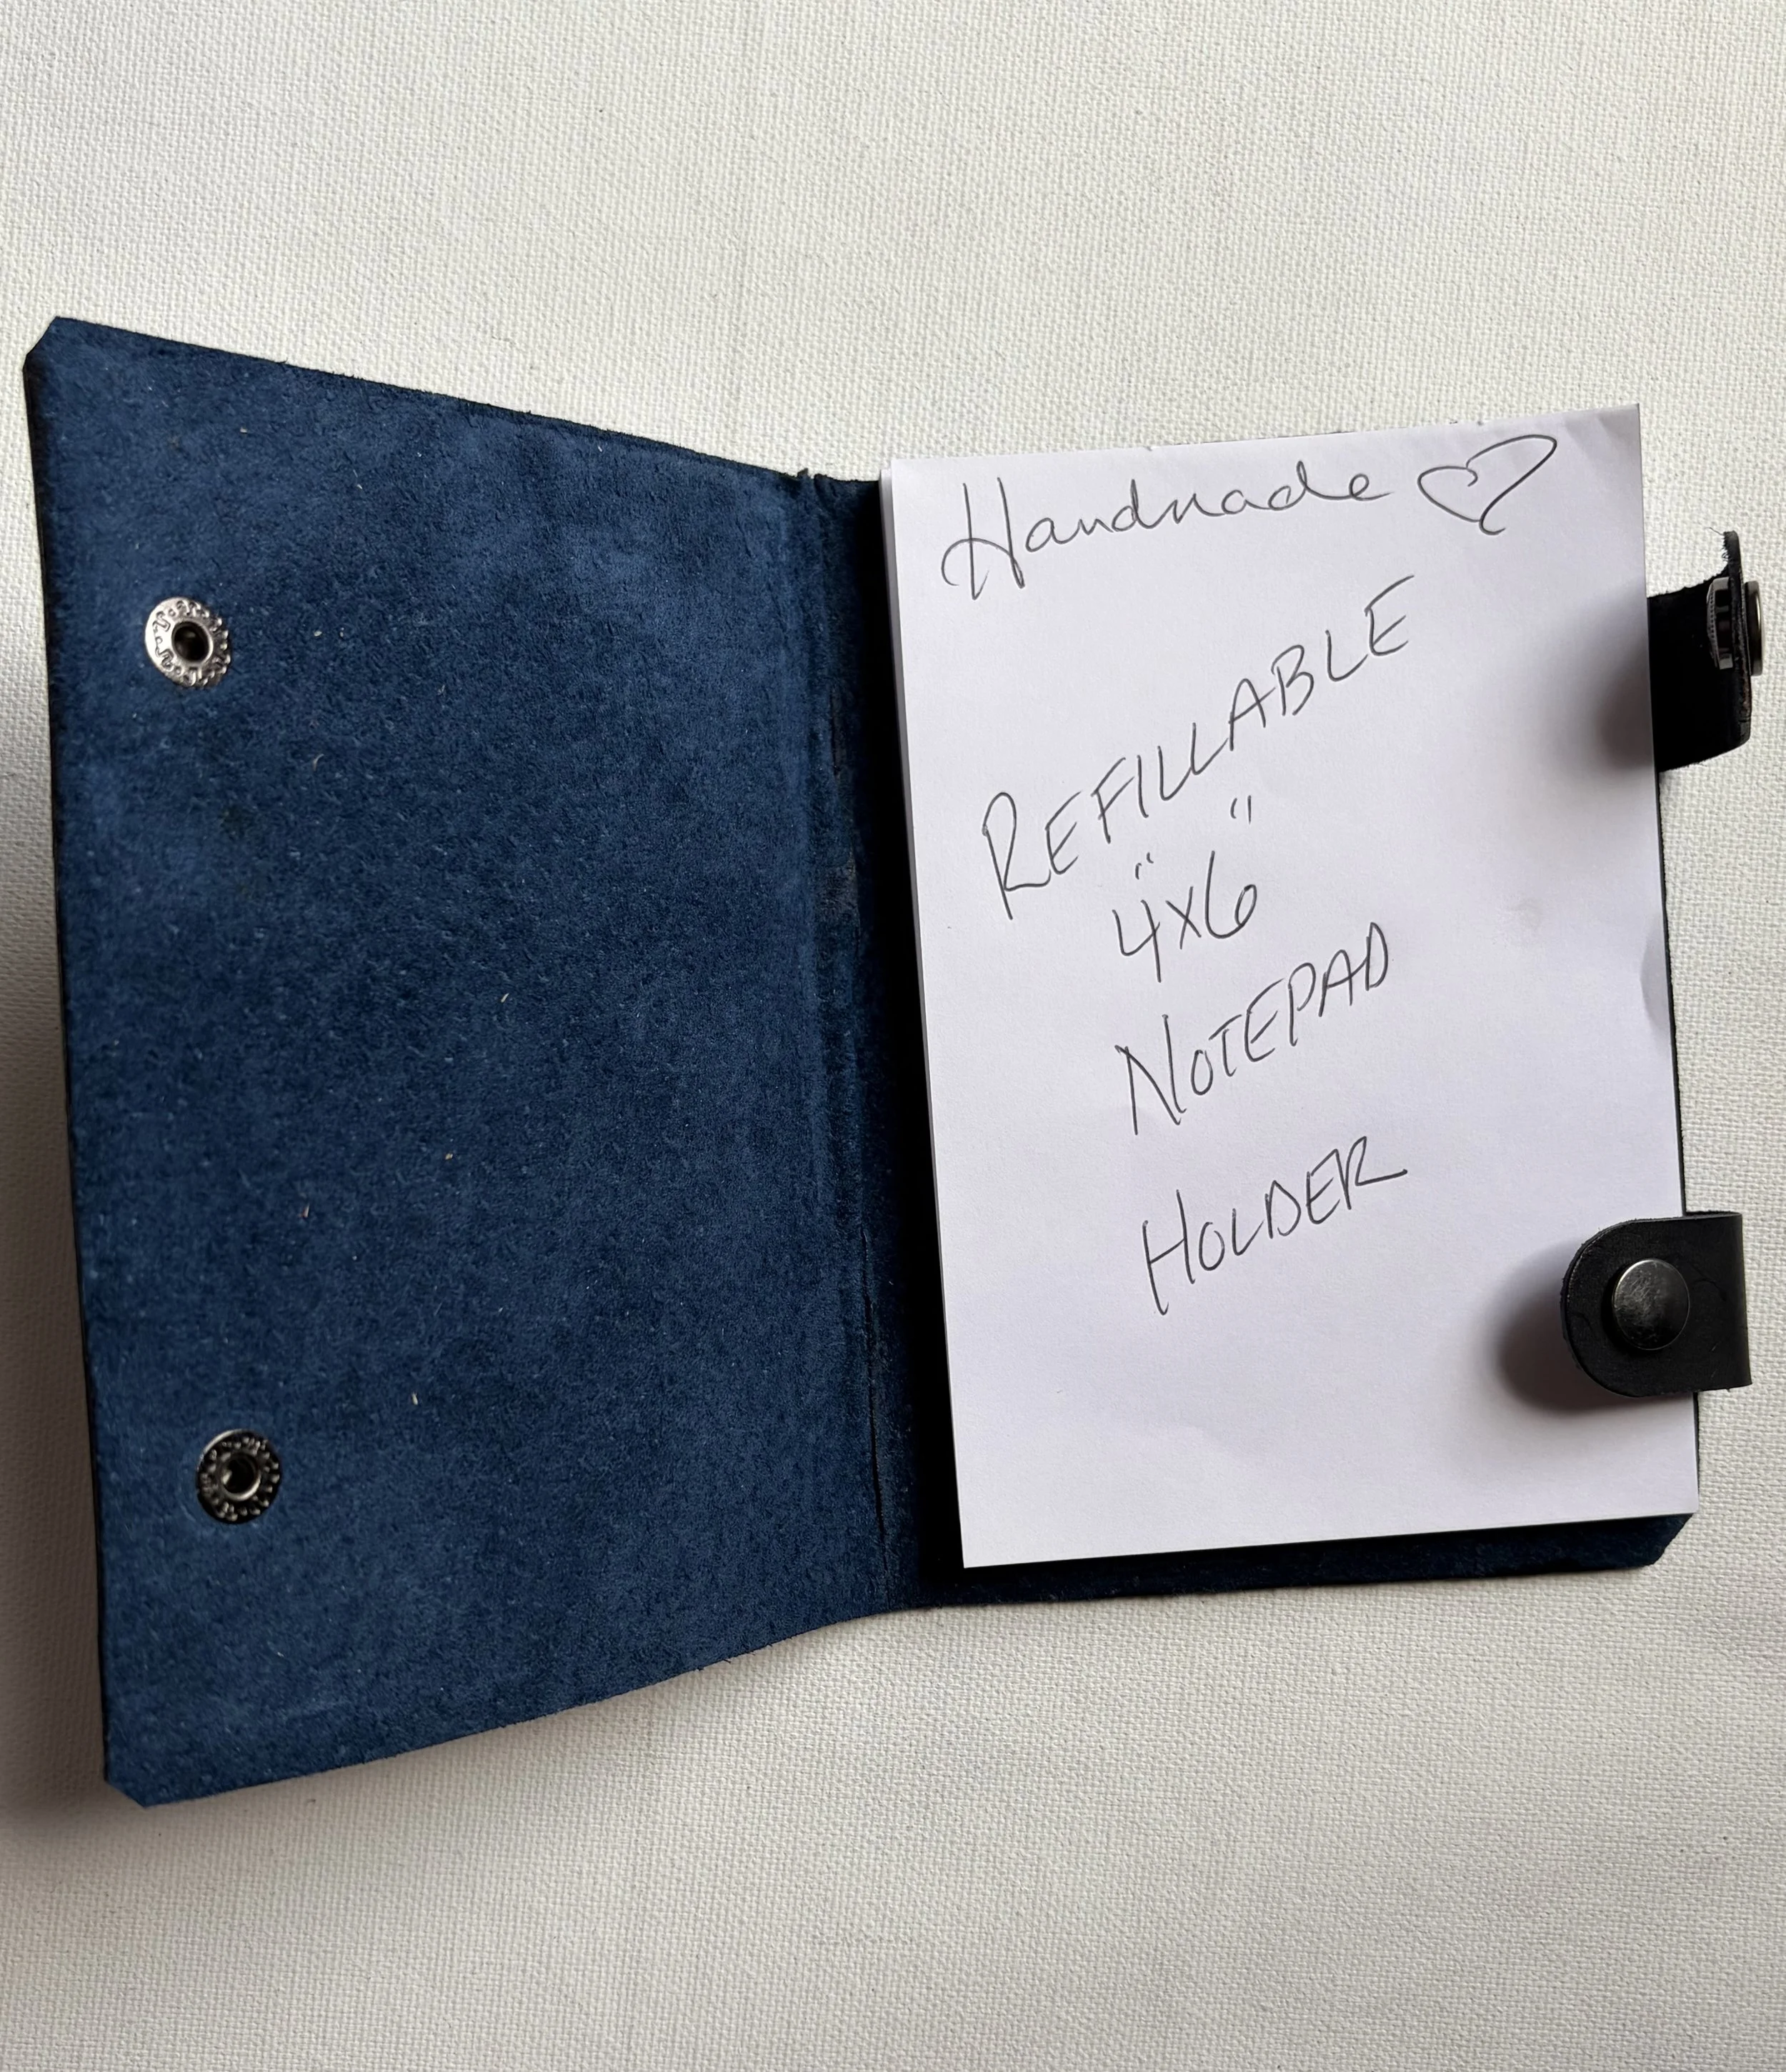 Handmade ♡
REFILLABLE
4"x6"
NOTEPAD
HOLDER